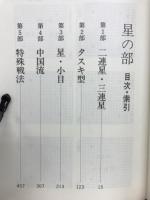 星の部
目次・索引
第1部 二連星・三連星 15
第2部 タスキ型 123
第3部 星・小目 213
第4部 中国流 307
第5部 特殊戦法 417